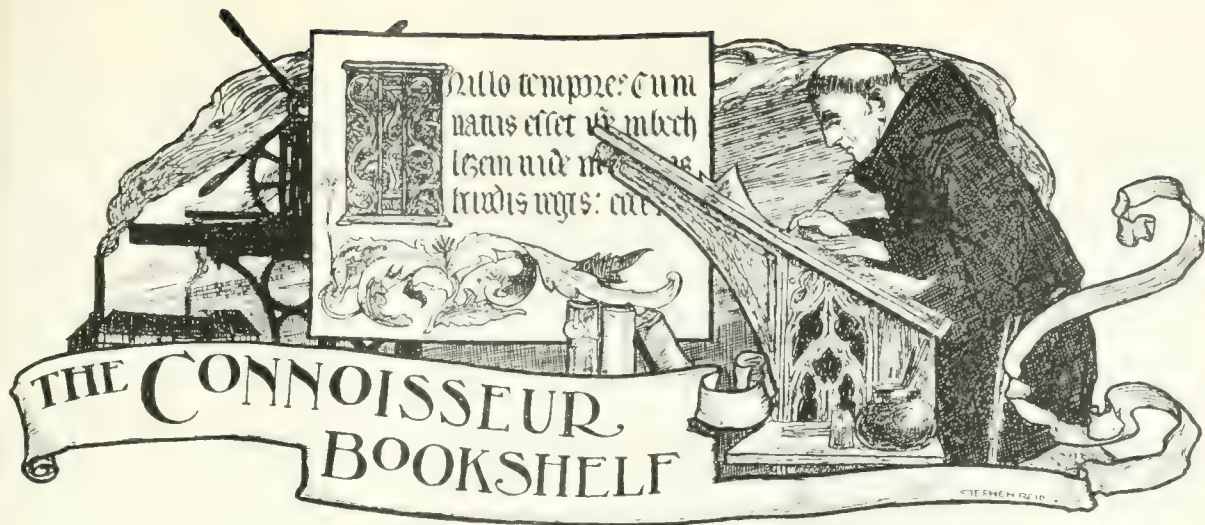 INillo tempore: Cum
natus esset in beth
leem iude
regis:
THE CONNOISSEUR
BOOKSHELF
STEPHEN REID